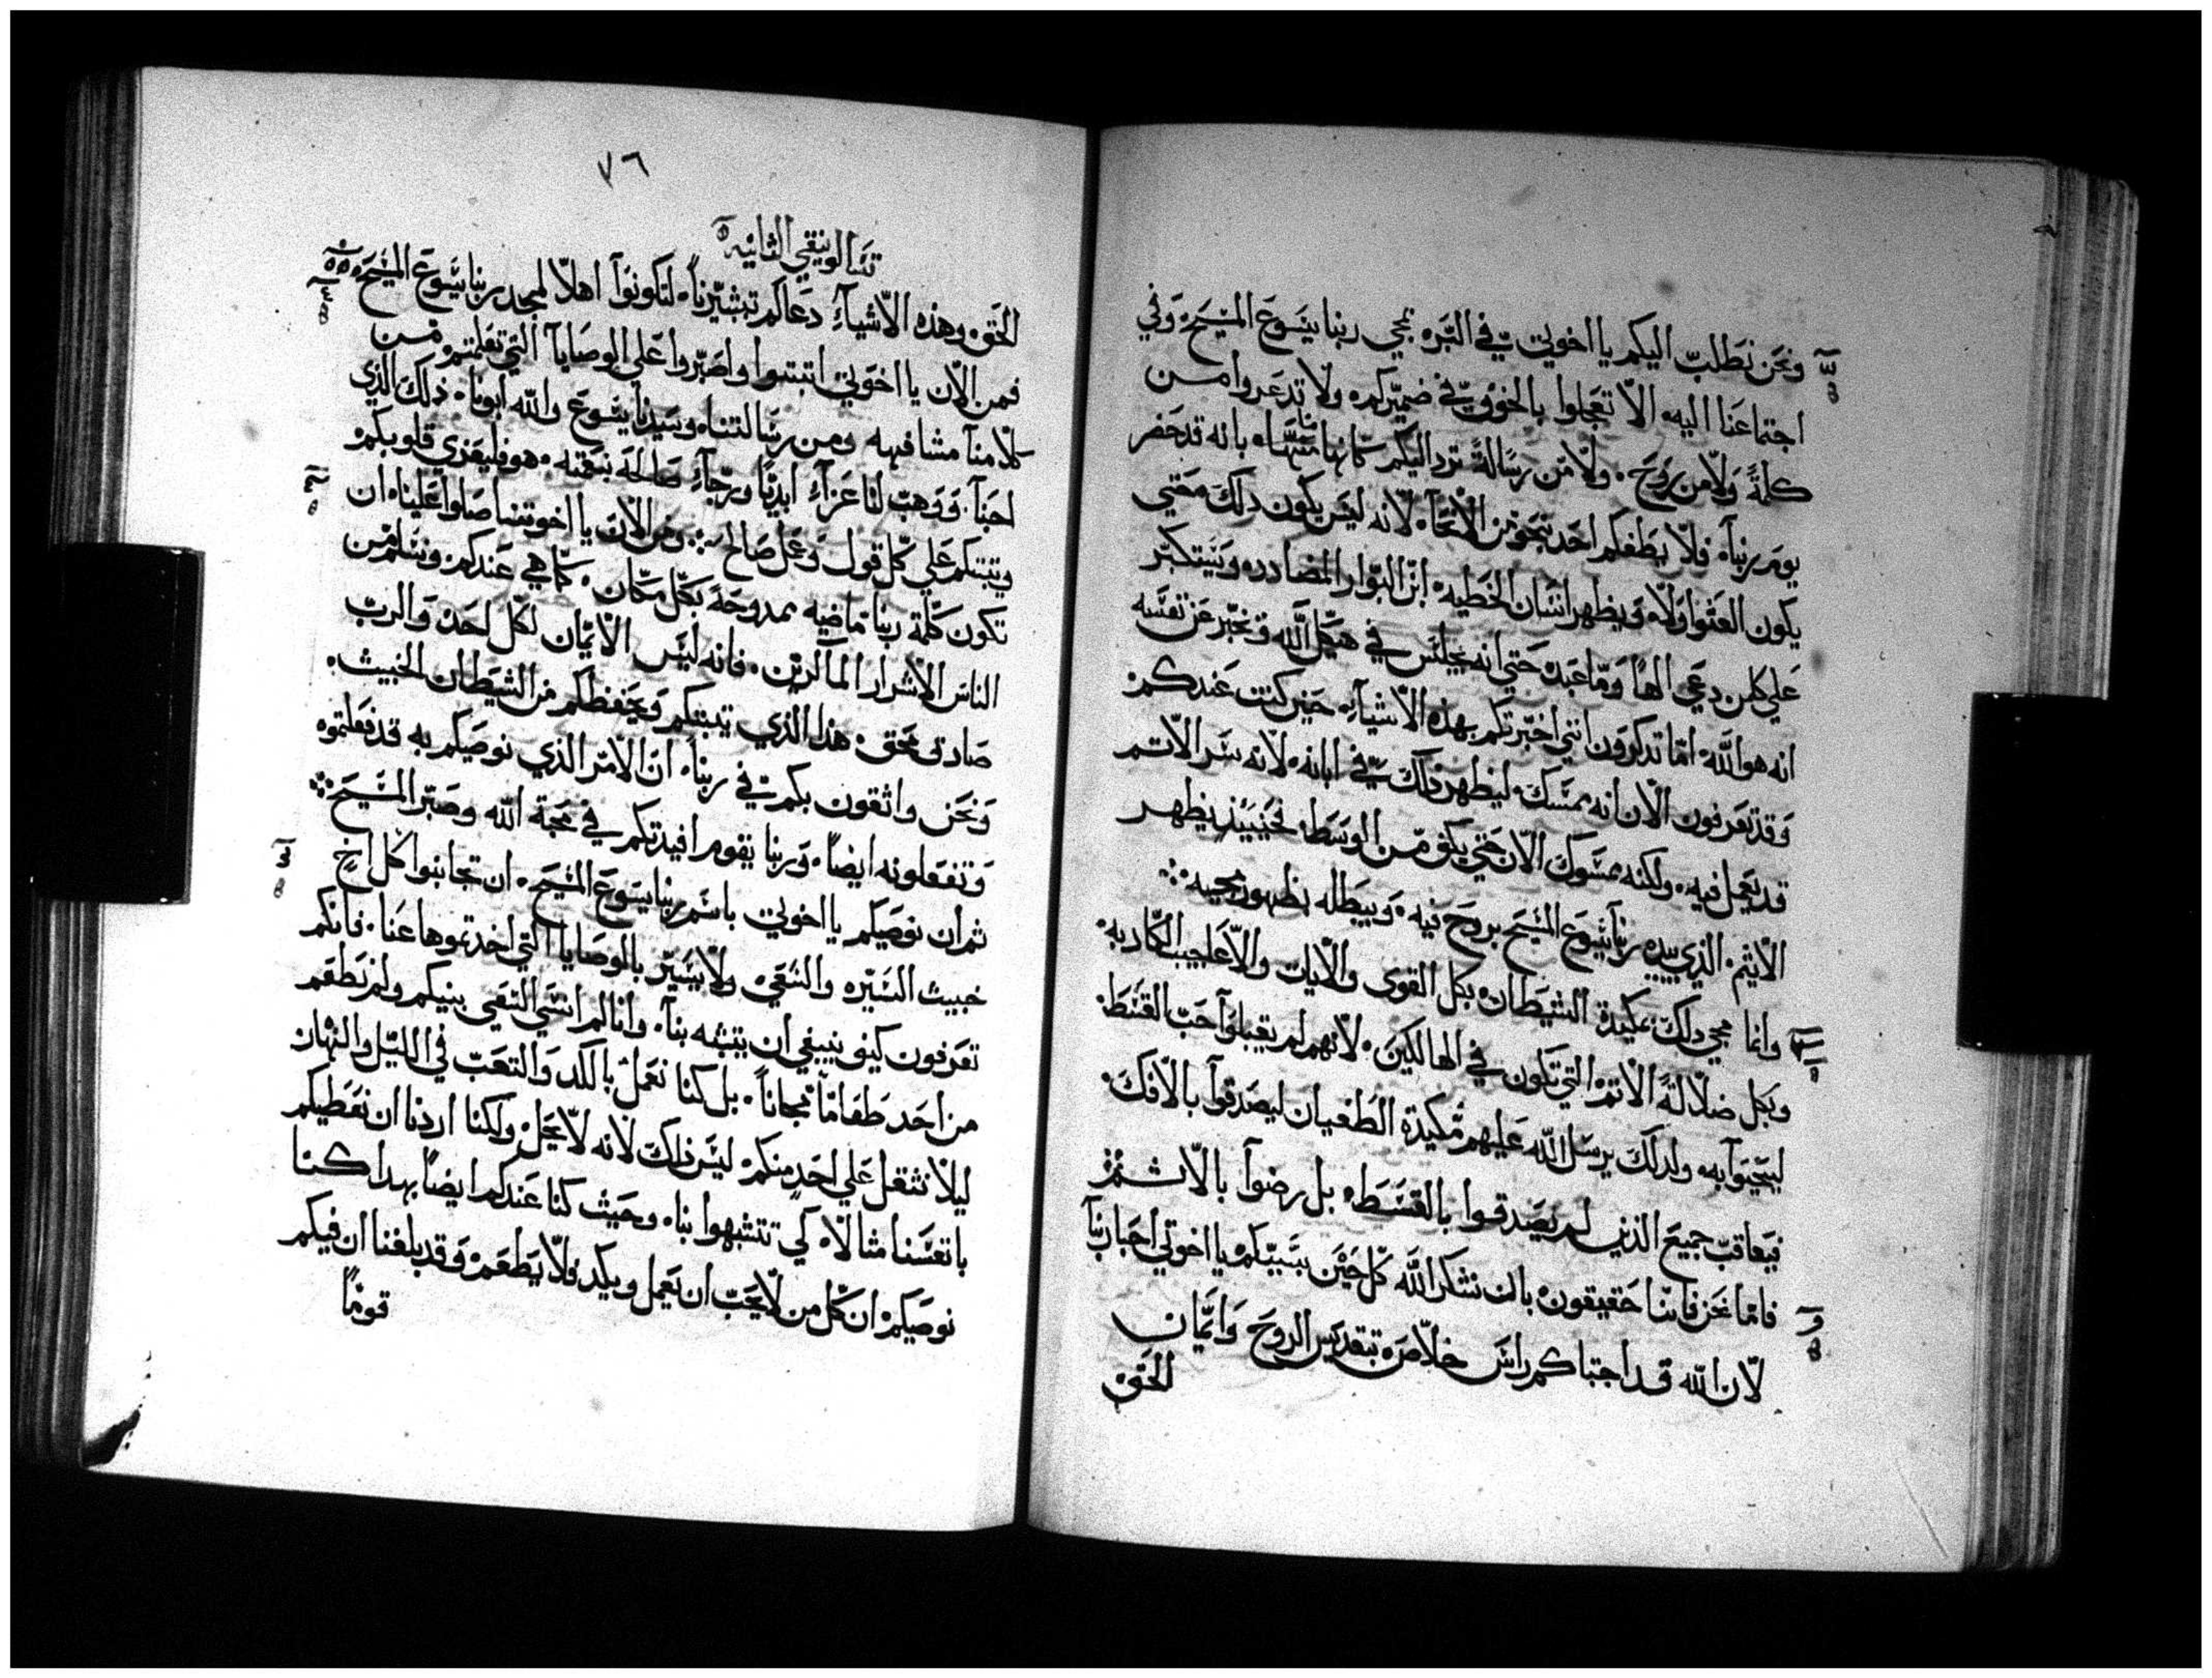 ونحن نطلب اليكم يا اخوتي في البره بمجي ربنا يسوع المسيح وفي
اجتماعنا اليه الا تعجلوا بالخوف في ضميركم ولا تدعروا من
كلمة ولا من روح ولا من رسالة ترد اليكم كانها منا بانه قد حضر
يوم ربنا فلا يطغكم احد بنحو من الانحاء لانه ليس يكون دلك متي
يكون العتوا ولا ويظهر انسان الخطيه ابن البوار المضادد ويتكبر
علي كلمن دعي الها وما عبد حتي انه يجلس في هيكل الله وتخبر عن نفسه
انه هو الله اما تدكرون انني اخبرتكم بهذه الاشياء حين كنت عندكم
وقد تعرفون الان انه يمسك ليظهر ذلك في ابانه لانه سر الاتم
قد يعمل فيه ولكنه مسوك الان حتي يكف من الوسط فحينيذ يظهر
الاثيم الذي يبيده ربنا يسوع المسيح بروح فيه ويبطله بظهور مجيه
وانما مجي دلك بمكيدة الشيطان بكل القوي والايات والاعاجيب الكادبه
وبكل ضلالة الاتم التي تكون في الهالكين لانهم لم يقبلوا حب القسط
ليحيوا به ولدلك يرسل الله عليهم مكيدة الطغيان ليصدقوا بالافك
فيعاقب جميع الذين لم يصدقوا بالقسط بل رضوا بالاثم
فاما نحن فاننا حقيقون بان نشكر الله كل حين بسببكم يا اخوتي احبا ربنا
لان الله قد اجتباكم راس خلاص بتقديس الروح وايمان
الحق
٧٦
تسالونيقي الثانيه
الحق وهذه الاشياء دعاكم تبشيرنا لتكونوا اهلا لمجد ربنا يسوع المسيح
فمن الان يا اخوتي اتبتوا واصبروا علي الوصايا التي تعلمتم من
كلامنا مشافهه ومن رسالتنا وسيدنا يسوع والله ابونا ذلك الذي
احبنا ووهب لنا عزاء ابديا ورجاء صالحة بنعمته هو فليعزي قلوبكم
ويتبتكم علي كل قول وعمل صالح ومن الان يا اخوتنا صلوا علينا ان
تكون كلمة ربنا ماضيه ممدوحة بكل مكان كما هي عندكم ونسلم من
الناس الاشرار الماكرين فانه ليس الايمان لكل احد والرب
صادق محق هذا الذي يتبتكم ويحفظكم من الشيطان الخبيث
ونحن واثقون بكم في ربنا ان الامر الذي نوصيكم به قد فعلتموه
وتفعلونه ايضا وربنا يقوم افيدتكم في محبة الله وصبر المسيح
ثم ان نوصيكم يا اخوتي باسم ربنا يسوع المسيح ان تجانبوا كل اخ
خبيث السيره والشقي ولا يسير بالوصايا التي اخدتموها عنا فانكم
تعرفون كيف ينبغي ان يتشبه بنا وانا لم انسي السعي بينكم ولم نطعم
من احد طعاما مجانا بل كنا نعمل بالكد والتعب في الليل والنهار
ليلا نثقل علي احد منكم ليس ذلك لانه لا يحل ولكنا اردنا ان نعطيكم
بانفسنا مثالا كي تتشبهوا بنا وحيث كنا عندكم ايضا بهدا كنا
نوصيكم ان كل من لا يحب ان يعمل ويكد فلا يطعم وقد بلغنا ان فيكم
قوما